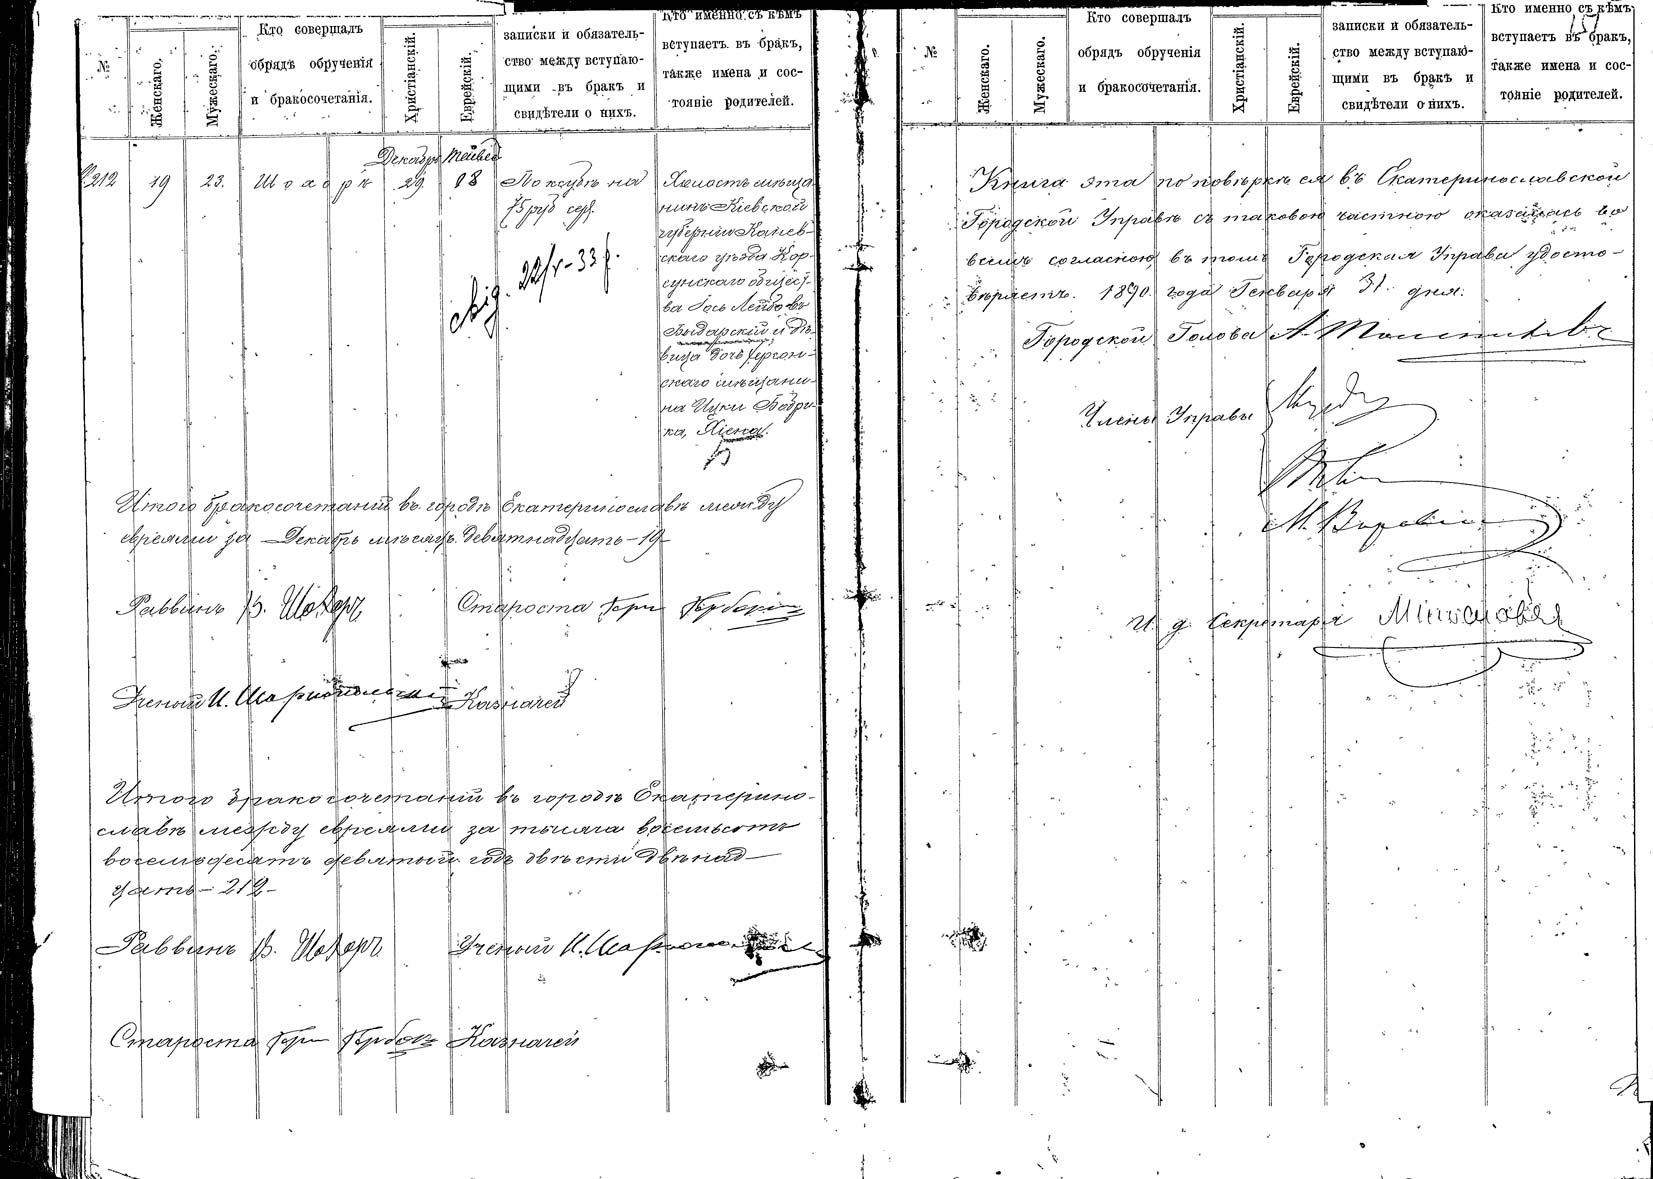 №
Женскаго.
Мужескаго.
Кто совершалъ
обрядъ обрученія
и бракосочетанія.
Христіанскій.
Еврейскій.
записки и обязатель-
ство между вступаю-
щими въ бракъ и
свидѣтели о нихъ.
Кто именно съ кѣмъ
вступаетъ въ бракъ,
также имена и сос-
тояніе родителей.
Декабрь
212 19 23. 29 18
По ктубѣ на
75 руб сер.
22/V - 33 г.
Холостъ мѣща-
нинъ Кіевской
губерніи Канев-
скаго уѣзда Кор-
сунскаго общест-
ва Іось Лейбовъ
и дѣ-
вица дочь Херсон-
скаго мѣщани-
на Ицки Бобри-
ка,
Итого бракосочетаній въ городѣ Екатеринославѣ между
евреями за Декабрь мѣсяцъ девятнадцать - 19 -
Раввинъ В. Шахоръ Староста
Ученый И. Казначей
Итого бракосочетаній въ городѣ Екатерино-
славѣ между евреями за тысяча восемьсотъ
восемьдесятъ девятый годъ двѣсти двѣнад-
цать - 212 -
Раввинъ В. Шахоръ Ученый И.
Староста Казначей
151
№
Женскаго.
Мужескаго.
Кто совершалъ
обрядъ обрученія
и бракосочетанія.
Христіанскій.
Еврейскій.
записки и обязатель-
ство между вступаю-
щими въ бракъ и
свидѣтели о нихъ.
Кто именно съ кѣмъ
вступаетъ въ бракъ,
также имена и сос-
тояніе родителей.
Книга эта по повѣркѣ ея въ Екатеринославской
Городской Управѣ съ таковою частною оказалась во
всемъ согласною, въ томъ Городская Управа удосто-
вѣряетъ. 1890 года Генваря 31 дня.
Городской Голова А.
Члены Управы
М.
И. д. Секретаря